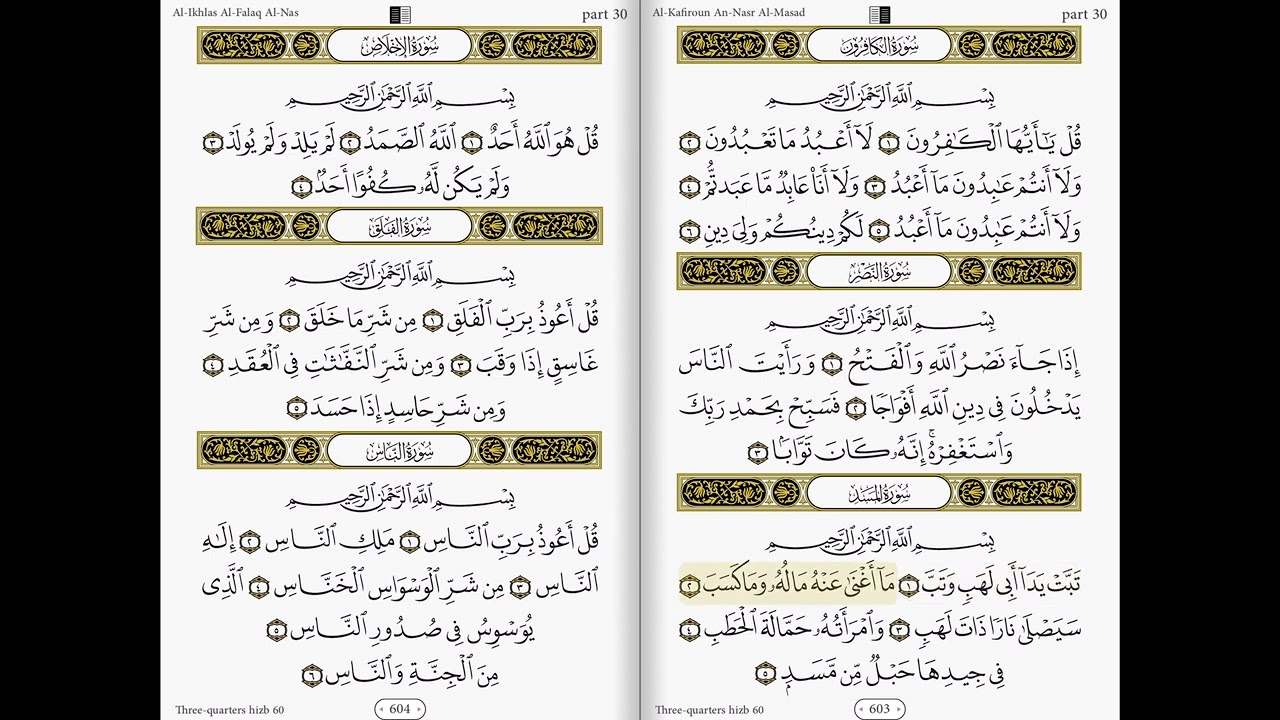 Al-Kafiroun An-Nasr Al-Masad
part 30
سُورَةُ الكَافِرُونَ
بِسْمِ ٱللَّهِ ٱلرَّحْمَٰنِ ٱلرَّحِيمِ
قُلْ يَٰٓأَيُّهَا ٱلْكَٰفِرُونَ ١ لَآ أَعْبُدُ مَا تَعْبُدُونَ ٢
وَلَآ أَنتُمْ عَٰبِدُونَ مَآ أَعْبُدُ ٣ وَلَآ أَنَا۠ عَابِدٌ مَّا عَبَدتُّمْ ٤
وَلَآ أَنتُمْ عَٰبِدُونَ مَآ أَعْبُدُ ٥ لَكُمْ دِينُكُمْ وَلِىَ دِينِ ٦
سُورَةُ النَّصْرِ
بِسْمِ ٱللَّهِ ٱلرَّحْمَٰنِ ٱلرَّحِيمِ
إِذَا جَآءَ نَصْرُ ٱللَّهِ وَٱلْفَتْحُ ١ وَرَأَيْتَ ٱلنَّاسَ
يَدْخُلُونَ فِى دِينِ ٱللَّهِ أَفْوَاجًا ٢ فَسَبِّحْ بِحَمْدِ رَبِّكَ
وَٱسْتَغْفِرْهُ ۚ إِنَّهُۥ كَانَ تَوَّابًۢا ٣
سُورَةُ المَسَدِ
بِسْمِ ٱللَّهِ ٱلرَّحْمَٰنِ ٱلرَّحِيمِ
تَبَّتْ يَدَآ أَبِى لَهَبٍ وَتَبَّ ١ مَآ أَغْنَىٰ عَنْهُ مَالُهُۥ وَمَا كَسَبَ ٢
سَيَصْلَىٰ نَارًا ذَاتَ لَهَبٍ ٣ وَٱمْرَأَتُهُۥ حَمَّالَةَ ٱلْحَطَبِ ٤
فِى جِيدِهَا حَبْلٌ مِّن مَّسَدٍۭ ٥
Three-quarters hizb 60
603
Al-Ikhlas Al-Falaq Al-Nas
part 30
سُورَةُ الإِخْلَاصِ
بِسْمِ ٱللَّهِ ٱلرَّحْمَٰنِ ٱلرَّحِيمِ
قُلْ هُوَ ٱللَّهُ أَحَدٌ ١ ٱللَّهُ ٱلصَّمَدُ ٢ لَمْ يَلِدْ وَلَمْ يُولَدْ ٣
وَلَمْ يَكُن لَّهُۥ كُفُوًا أَحَدٌۢ ٤
سُورَةُ الفَلَقِ
بِسْمِ ٱللَّهِ ٱلرَّحْمَٰنِ ٱلرَّحِيمِ
قُلْ أَعُوذُ بِرَبِّ ٱلْفَلَقِ ١ مِن شَرِّ مَا خَلَقَ ٢ وَمِن شَرِّ
غَاسِقٍ إِذَا وَقَبَ ٣ وَمِن شَرِّ ٱلنَّفَّٰثَٰتِ فِى ٱلْعُقَدِ ٤
وَمِن شَرِّ حَاسِدٍ إِذَا حَسَدَ ٥
سُورَةُ النَّاسِ
بِسْمِ ٱللَّهِ ٱلرَّحْمَٰنِ ٱلرَّحِيمِ
قُلْ أَعُوذُ بِرَبِّ ٱلنَّاسِ ١ مَلِكِ ٱلنَّاسِ ٢ إِلَٰهِ
ٱلنَّاسِ ٣ مِن شَرِّ ٱلْوَسْوَاسِ ٱلْخَنَّاسِ ٤ ٱلَّذِى
يُوَسْوِسُ فِى صُدُورِ ٱلنَّاسِ ٥
مِنَ ٱلْجِنَّةِ وَٱلنَّاسِ ٦
Three-quarters hizb 60
604